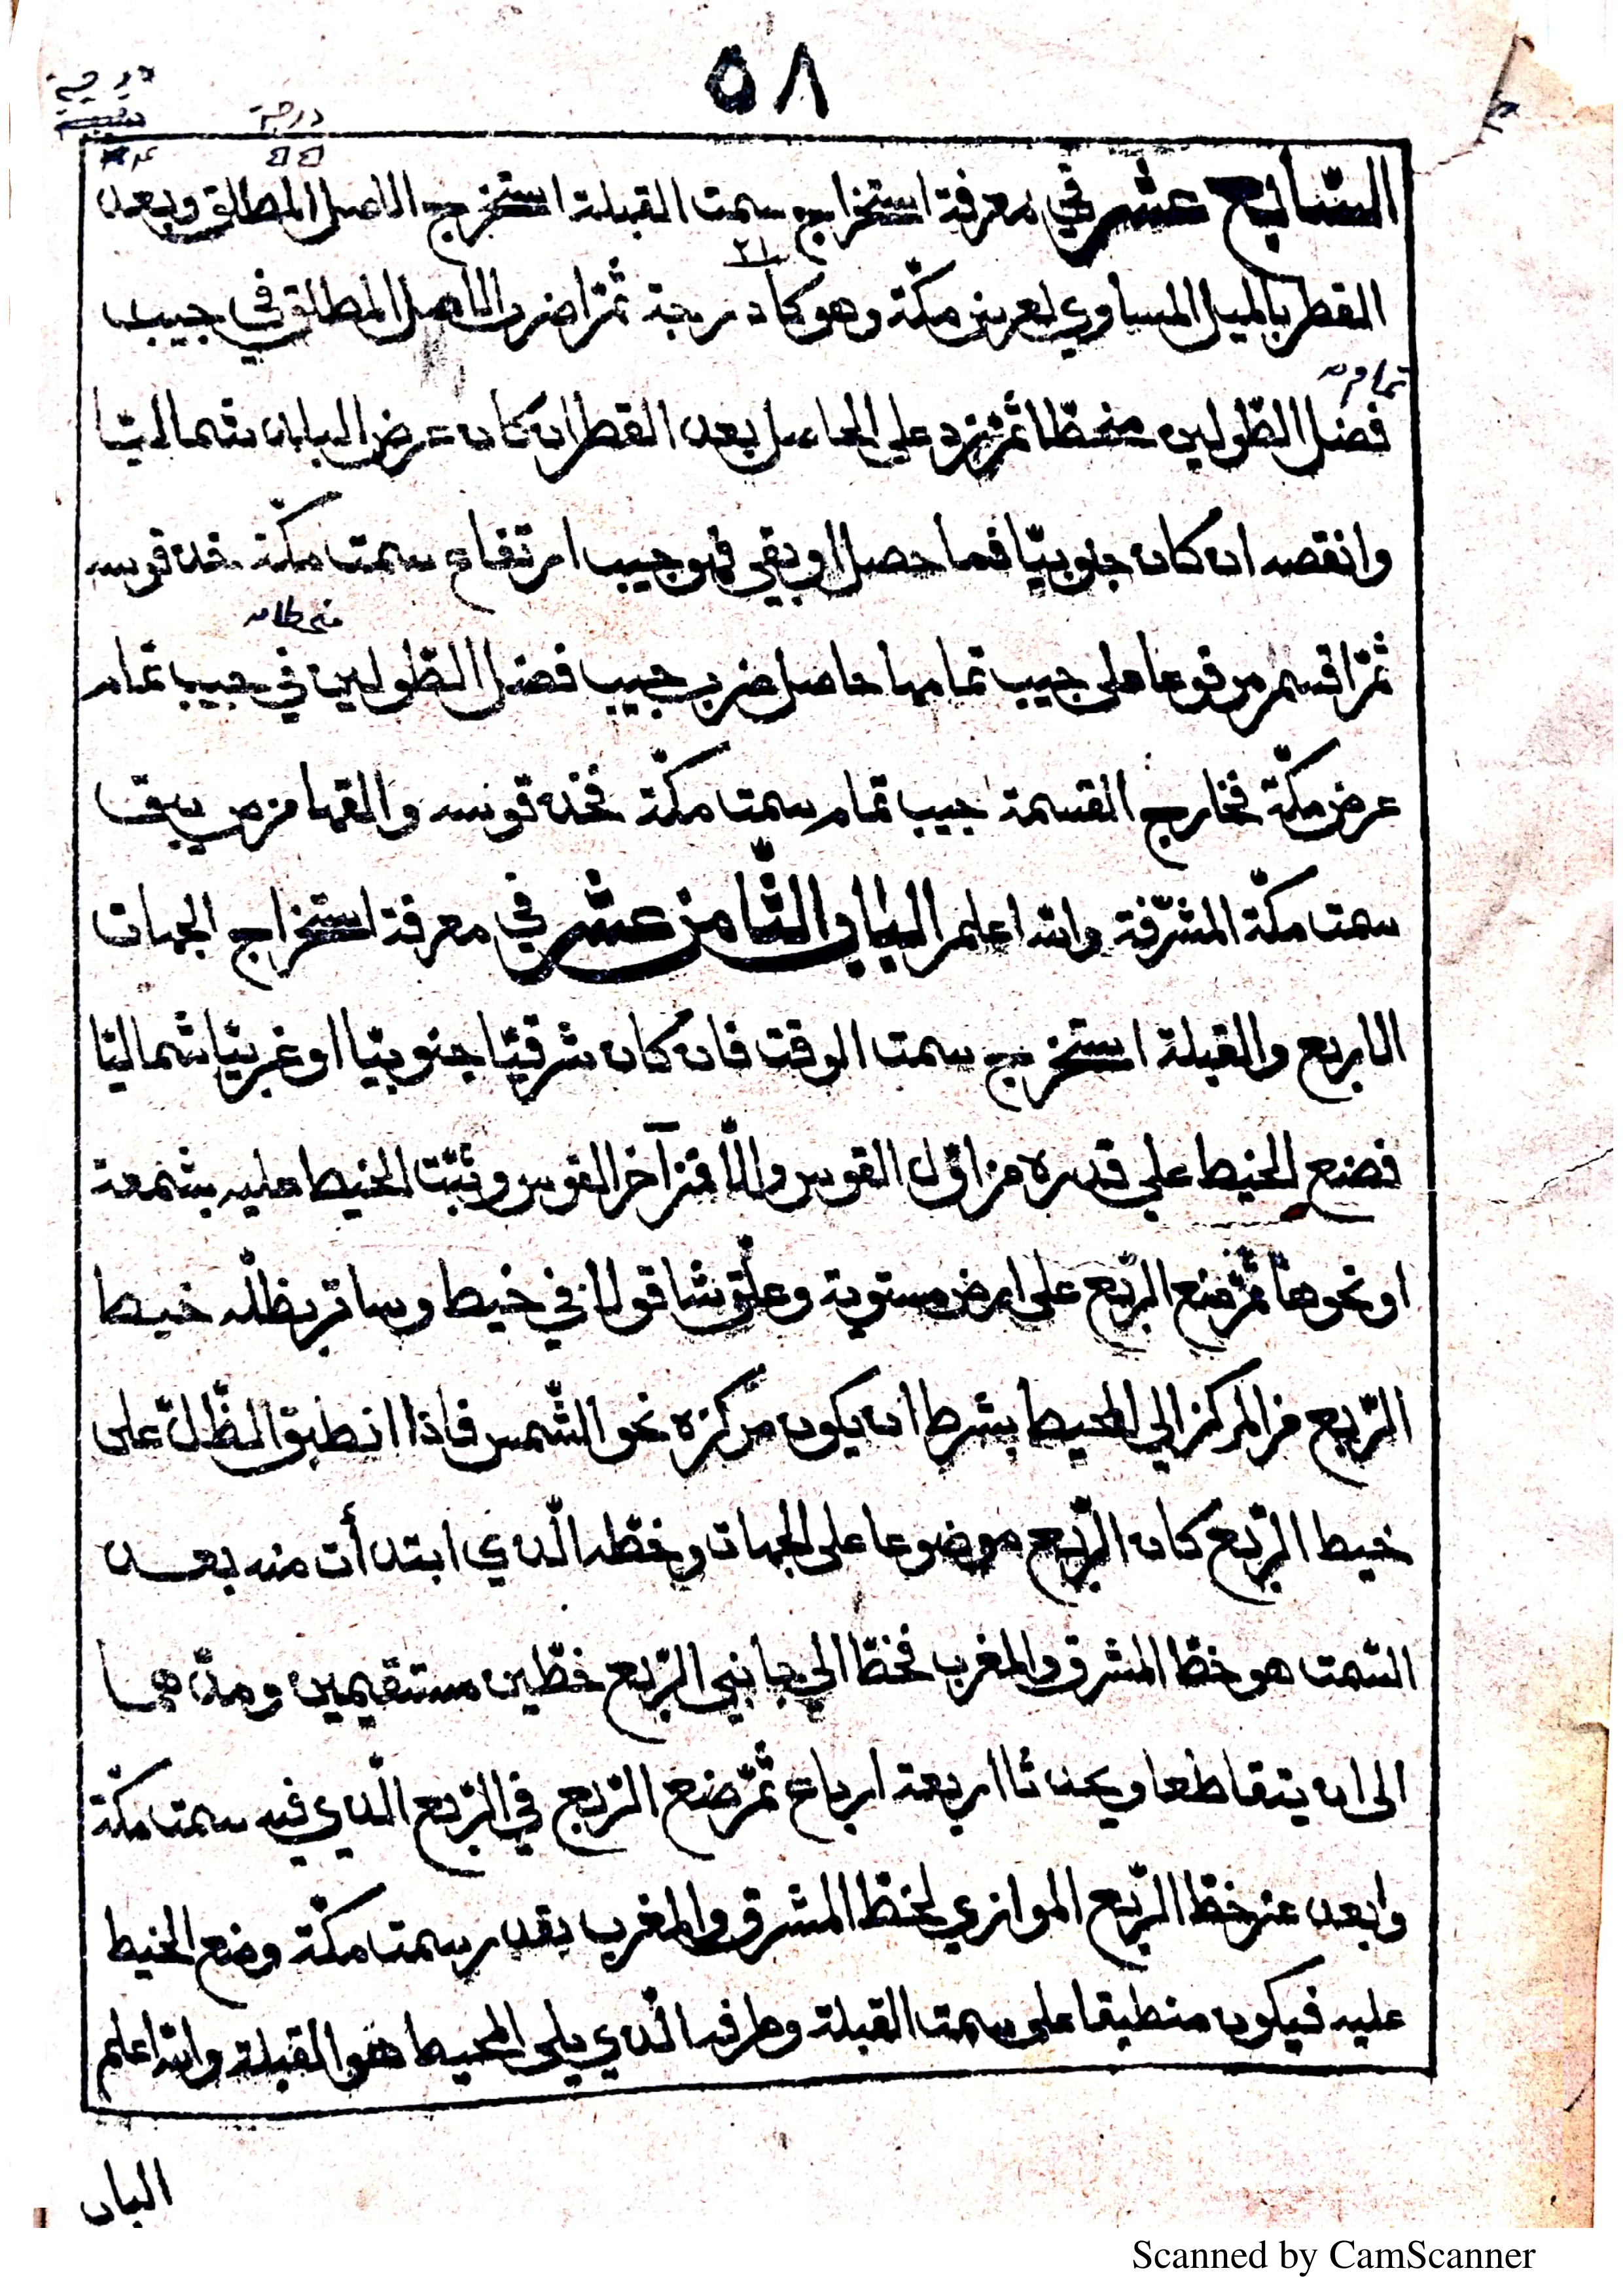 ٥٨
درجة
درجة
٥٥
السابع عشر في معرفة استخراج سمت القبلة استخرج الاصل المطلق وبعد
٢١
القطر بالميل المساوي لعرض مكّة وهو كا درجة ثمّ اضرب الاصل المطلق في جيب
تمام
فضل الطّولين منحطّا ثمّ زد على الحاصل بعد القطر ان كان عرض البلد شماليّا
وانقصه ان كان جنوبيّا فما حصل او بقي فهو جيب ارتفاع سمت مكّة خذ قوسه
منحطا
ثمّ اقسم مرفوعا على جيب تمامها حاصل ضرب جيب فضل الطّولين في جيب تمام
عرض مكّة فخارج القسمة جيب تمام سمت مكّة فخذ قوسه والقها من ص يبق
سمت مكّة المشرّفة والله اعلم الباب الثّامن عشر في معرفة استخراج الجهات
الاربع والقبلة استخرج سمت الوقت فان كان شرقيّا جنوبيّا او غربيّا شماليّا
فضع الخيط على قدره من اوّل القوس والّا فمن آخر القوس وثبّت الخيط عليه بشمعة
او نحوها ثمّ ضع الرّبع على ارض مستوية وعلّق شاقولا في خيط وساتر بظلّه خيط
الرّبع من المركز الي المحيط بشرط ان يكون مركزه نحو الشّمس فاذا انطبق الظّلّ على
خيط الرّبع كان الرّبع موضوعا على الجهات وخطّه الّذي ابتدأت منه بعد
السّمت هو خطّ المشرق والمغرب فخطّ الي جانبي الرّبع خطّين مستقيمين ومدّهما
الى ان يتقاطعا ويحدثا اربعة ارباع ثمّ ضع الرّبع في الرّبع الّذي فيه سمت مكّة
وابعد عن خطّ الرّبع الموازي لخطّ المشرق والمغرب بقدر سمت مكّة وضع الخيط
عليه فيكون منطبقا على سمت القبلة وطرفه الّذي يلي المحيط هو القبلة والله اعلم
الباب
Scanned by CamScanner